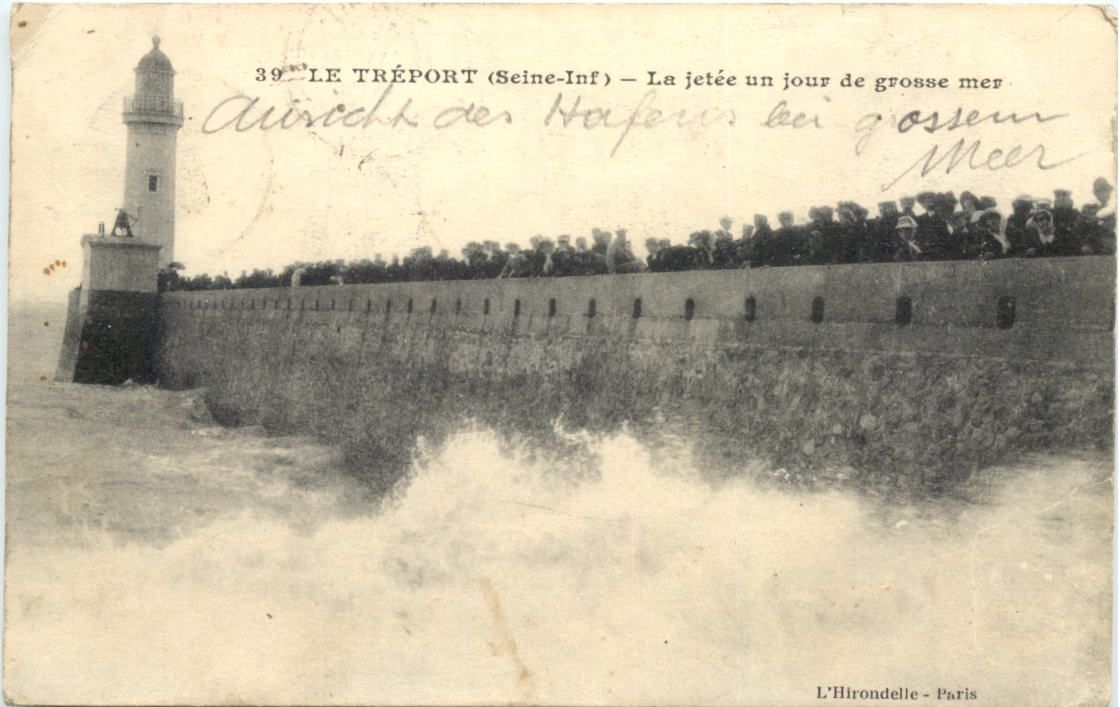 39 - LE TRÉPORT (Seine-Inf) - La jetée un jour de grosse mer
Ansicht des Hafens bei grossem
Meer
L'Hirondelle - Paris